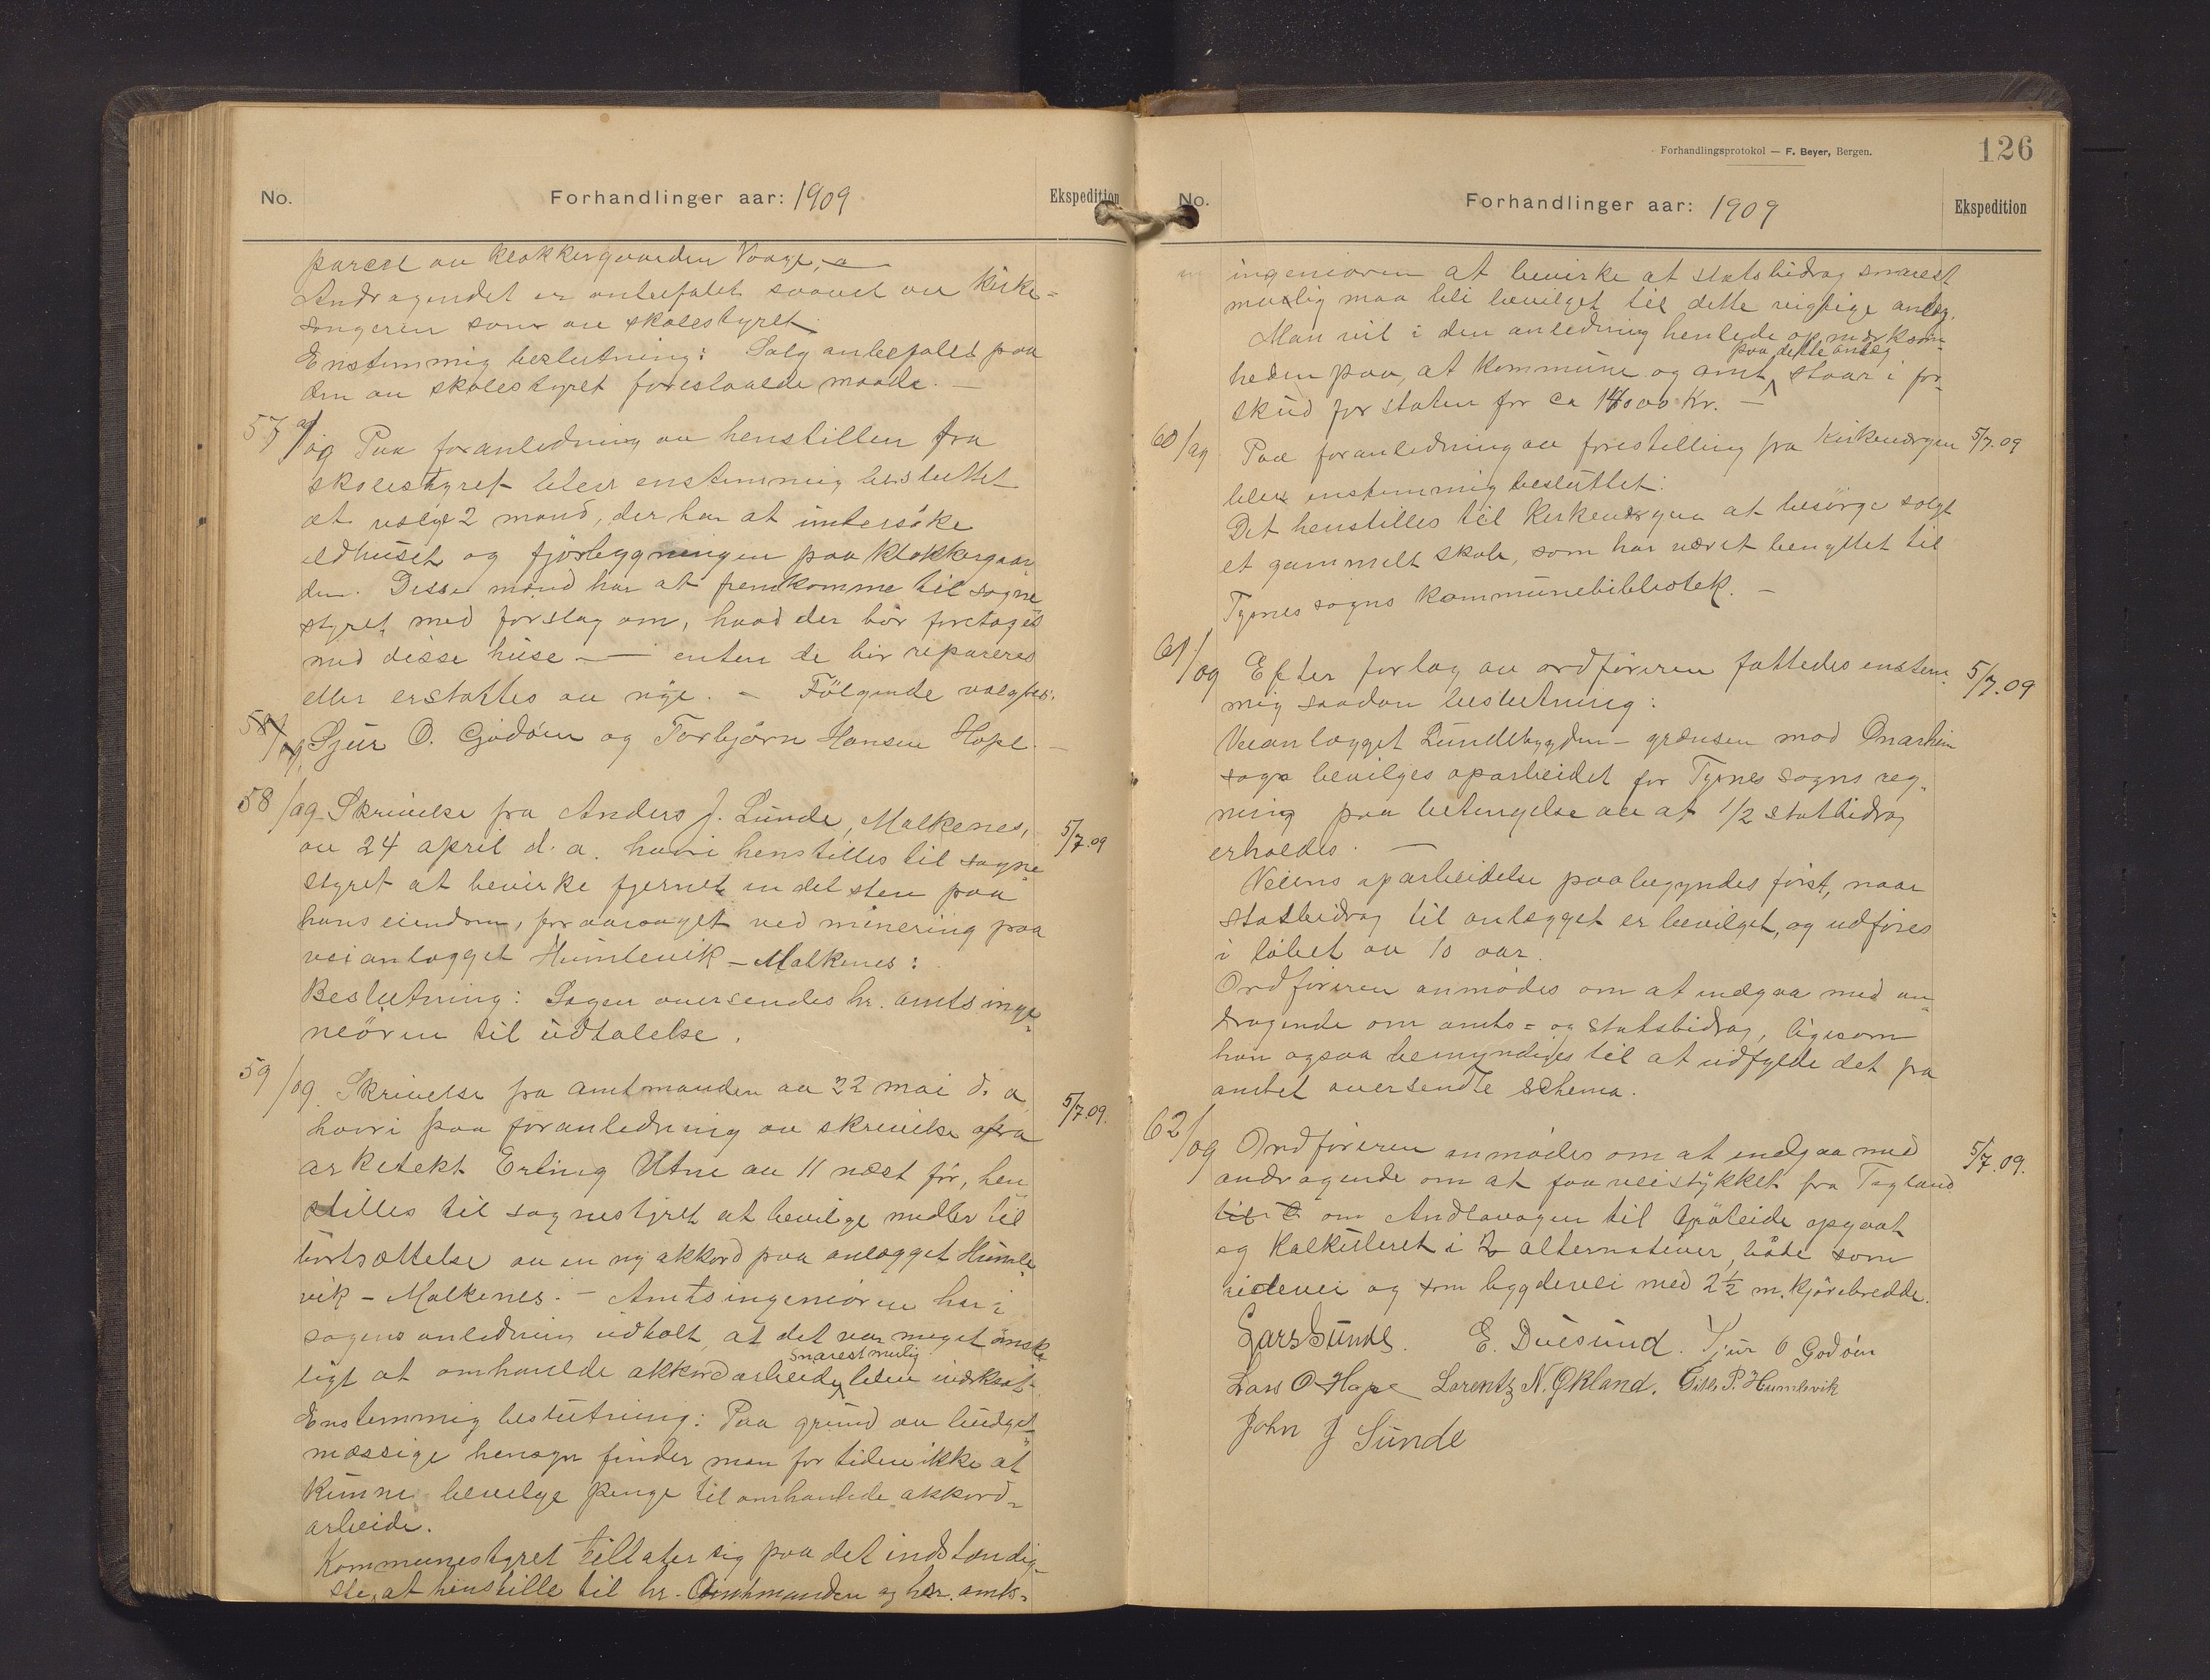 No.
Forhandlinger aar: 1909
Ekspedition
parcel av klokkergaarden Vaage. —
Andragendet er anbefalet saavel av Kirke-
sangeren som av skolestyret.
Enstemmig beslutning: Salg anbefales paa
den av skolestyret foreslaaede maade. —
57/09 Paa foranledning av henstillen fra
skolestyret blev enstemmig besluttet
at vælge 2 mænd, der har at undersöke
eldhuset og fjösbygningen paa klokkergaar
den. Disse mænd har at fremkomme til sogne
styret med forslag om, hvad der bör foretages
med disse huse — enten de bör repareres
eller erstattes av nye. — Fölgende valgtes:
58/09 Sjur O. Godöen og Torbjörn Hansen Hope. —
58/09 Skrivelse fra Anders J. Lunde, Malkenes,
av 24 april d. a. hvori henstilles til sogne
styret at bevirke fjernet en del sten paa
hans eiendom, foraarsaget ved minering paa
veianlægget Humlevik – Malkenes:
5/7.09
Beslutning: Sagen oversendes hr. amtsinge-
neören til udtalelse.
59/09. Skrivelse fra amtmanden av 22 mai d. a.
hvori paa foranledning av skrivelse fra
arkitekt Erling Utne av 11 næst för, hen
stilles til sognestyret at bevilge midler til
fortsættelse av en ny akkord paa anlægget Humle
vik – Malkenes. – Amtsingeniören har i
sagens anledning udtalt, at det var meget önske
snarest mulig
ligt at omhandlede akkordarbeide blev iverksat.
5/7.09.
Enstemmig beslutning: Paa grund av budget-
mæssige hensyn finder man for tiden ikke at
kunne bevilge penge til omhandlede akkord-
arbeide.
Kommunestyret tillater sig paa det indstændig-
ste, at henstille til hr. Amtmanden og herr. amts-
Forhandlingsprotokol — F. Beyer, Bergen.
126
No.
Forhandlinger aar: 1909
Ekspedition
ingeniören at bevirke at statsbidrag snarest
muelig maa bli bevilget til dette vigtige anlæg.
Man vil i den anledning henlede opmærksom-
paa dette anlæg
heden paa, at kommune og amt staar i for-
skud for staten for ca 14000 Kr. —
60/09 Paa foranledning av forestilling fra Kirkeværgen 5/7.09
blev enstemmig besluttet:
Det henstilles til Kirkeværgen at besörge solgt
et gammelt skab, som har været benyttet til
Tysnes sogns kommunebibliotek. —
61/09 Efter forlag av ordföreren fattedes enstem- 5/7.09
mig saadan beslutning:
Veianlægget Lundebygden – grænsen mod Onarheim
sogn bevilges oparbeidet for Tysnes sogns reg-
ning paa betingelse av at 1/2 statbidrag
erholdes. —
Veiens oparbeidelse paabegyndes först, naar
statbidrag til anlægget er bevilget, og udföres
i löbet av 10 aar.
Ordföreren anmodes om at indgaa med an-
dragende om amts- og statsbidrag, ligesom
han ogsaa bemyndiges til at udfylde det fra
amtet oversendte schema.
62/09 Ordföreren anmodes om at indgaa med 5/7.09.
andragende om at faa veistykket fra Tagland
til om Andlavagen til opgaat
og kalkuleret i 2 alternativer, både som
ridevei og som bygdevei med 2 1/2 m. kjörebredde.
Lars Sunde. E. Duesund. Sjur O Godöen
Lars O Hope Lorentz N. Økland. Gitle P. Humlevik
John J Sunde